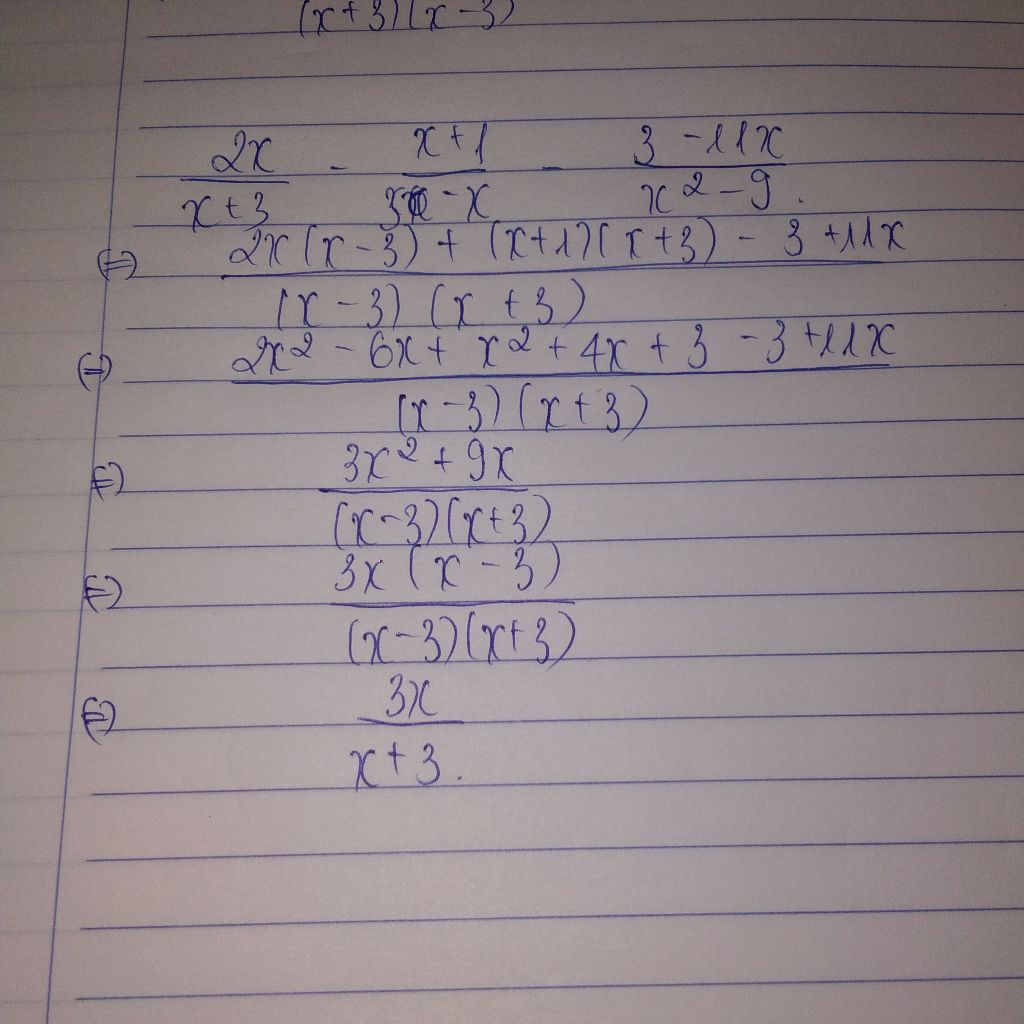 (x+3)(x-3)
2x/(x+3) - (x+1)/(3-x) - (3-11x)/(x²-9).
(=) (2x(x-3)+(x+1)(x+3)-3+11x)/((x-3)(x+3))
(=) (2x²-6x+x²+4x+3-3+11x)/((x-3)(x+3))
(=) (3x²+9x)/((x-3)(x+3))
(=) (3x(x-3))/((x-3)(x+3))
(=) 3x/(x+3).